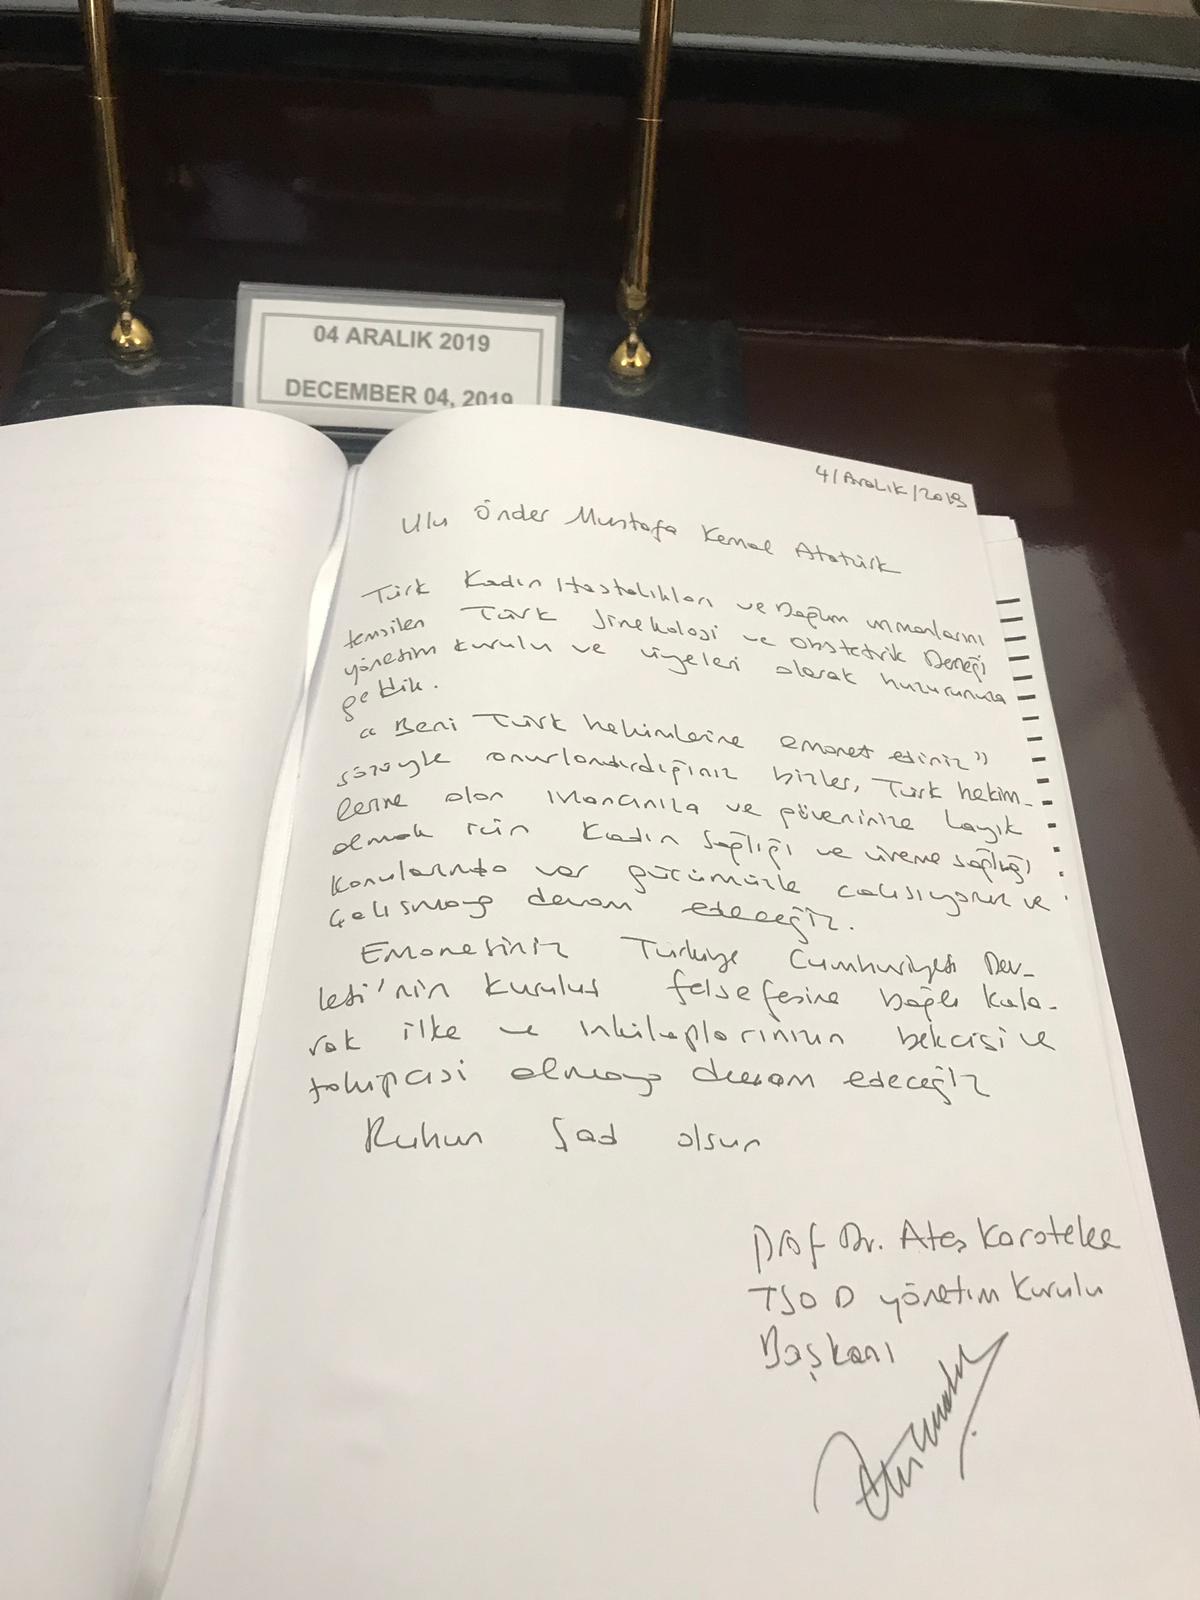 04 ARALIK 2019
DECEMBER 04, 2019
4/Aralık/2019
Ulu Önder Mustafa Kemal Atatürk
Türk Kadın Hastalıkları ve Doğum uzmanlarını
temsilen Türk Jinekoloji ve Obstetrik Derneği
yönetim kurulu ve üyeleri olarak huzurunuza
geldik.
"Beni Türk hekimlerine emanet ediniz"
sözüyle onurlandırdığınız bizler, Türk hekim-
lerine olan inancınıza ve güveninize layık
olmak için Kadın sağlığı ve üreme sağlığı
konularında var gücümüzle çalışıyoruz ve
çalışmaya devam edeceğiz.
Emanetiniz Türkiye Cumhuriyeti Dev-
leti'nin kuruluş felsefesine bağlı kala-
rak ilke ve inkilaplarınızın bekcisi ve
takipcisi olmaya devam edeceğiz
Ruhun şad olsun
Prof Dr. Ateş Karateke
TJOD yönetim Kurulu
Başkanı